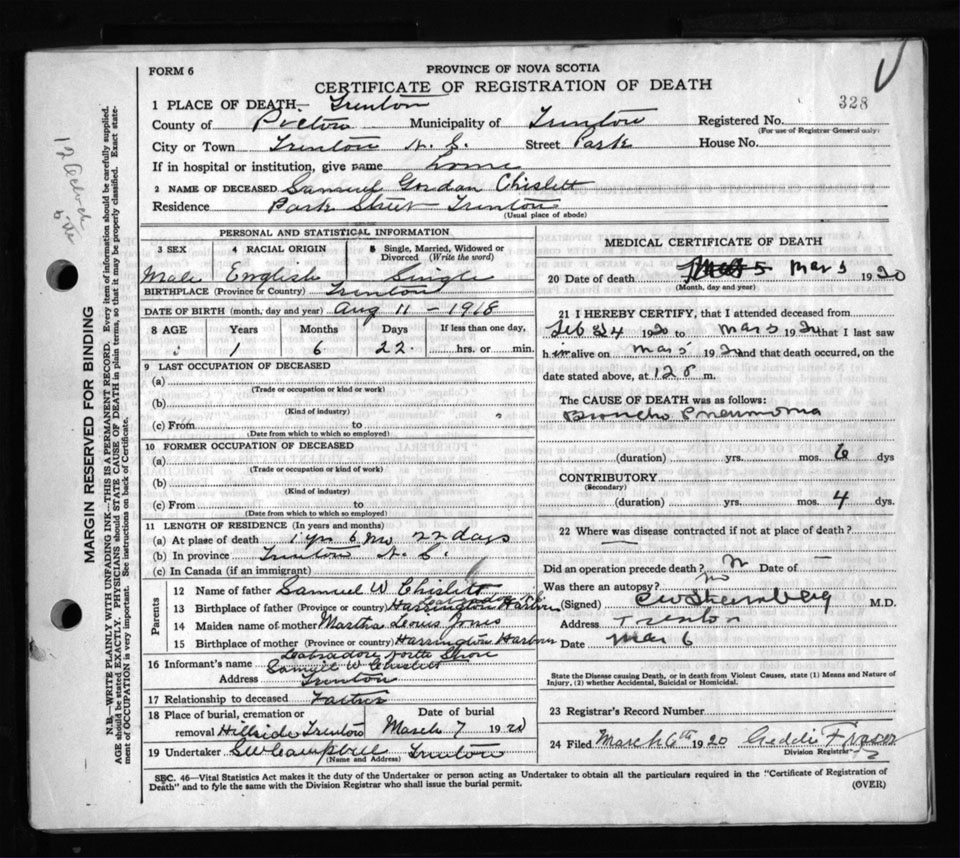 FORM 6
PROVINCE OF NOVA SCOTIA
CERTIFICATE OF REGISTRATION OF DEATH
328
1 PLACE OF DEATH— Trenton
County of Pictou Municipality of Trenton Registered No.
(For use of Registrar General only)
City or Town Trenton N. S. Street Park House No.
If in hospital or institution, give name home
2 NAME OF DECEASED Samuel Gordon Chislett
Residence Park Street Trenton
(Usual place of abode)
PERSONAL AND STATISTICAL INFORMATION
3 SEX 4 RACIAL ORIGIN 5 Single, Married, Widowed or Divorced (Write the word)
Male English Single
BIRTHPLACE (Province or Country) Trenton
DATE OF BIRTH (month, day and year) Aug 11 – 1918
8 AGE Years Months Days If less than one day,
1 6 22 hrs. or min.
9 LAST OCCUPATION OF DECEASED
(a)
(Trade or occupation or kind or work)
(b)
(Kind of industry)
(c) From to
(Date from which to which so employed)
10 FORMER OCCUPATION OF DECEASED
(a)
(Trade or occupation or kind of work)
(b)
(Kind of industry)
(c) From to
(Date from which to which so employed)
11 LENGTH OF RESIDENCE (In years and months)
(a) At place of death 1 yrs 6 mo 22 days
(b) In province Trenton N. S.
(c) In Canada (if an immigrant)
Parents
12 Name of father Samuel W Chislett
13 Birthplace of father (Province or country) Harrington Harbor
14 Maiden name of mother Martha Louis Jones
15 Birthplace of mother (Province or country) Harrington Harbor
Labrador North Shore
16 Informant's name Samuel W Chislett
Address Trenton
17 Relationship to deceased Father
18 Place of burial, cremation or Date of burial
removal Hillside Trenton March 7 1920
19 Undertaker Campbell Trenton
(Name and Address)
MEDICAL CERTIFICATE OF DEATH
20 Date of death Mar 5 1920
(Month, day and year)
21 I HEREBY CERTIFY, that I attended deceased from
Feb 24 1920 to Mar 5 1920 that I last saw
him alive on Mar 5 1920 and that death occurred, on the
date stated above, at 12 m.
The CAUSE OF DEATH was as follows:
Broncho Pneumonia
(duration) yrs. mos. 6 dys
CONTRIBUTORY
(Secondary)
(duration) yrs. mos. 4 dys.
22 Where was disease contracted if not at place of death?
Did an operation precede death? Date of
Was there an autopsy? no
(Signed) M.D.
Address Trenton
Date Mar 6
State the Disease causing Death, or in death from Violent Causes, state (1) Means and Nature of
Injury, (2) whether Accidental, Suicidal or Homicidal.
23 Registrar's Record Number
24 Filed March 6th 1920 Geddie Fraser
Division Registrar
SEC. 46—Vital Statistics Act makes it the duty of the Undertaker or person acting as Undertaker to obtain all the particulars required in the "Certificate of Registration of
Death" and to fyle the same with the Division Registrar who shall issue the burial permit. (OVER)
MARGIN RESERVED FOR BINDING
N.B.—WRITE PLAINLY WITH UNFADING INK—THIS IS A PERMANENT RECORD. Every item of information should be carefully supplied.
AGE should be stated EXACTLY. PHYSICIANS should STATE CAUSE OF DEATH in plain terms, so that it may be properly classified. Exact state-
ment of OCCUPATION is very important. See instructions on back of Certificate.